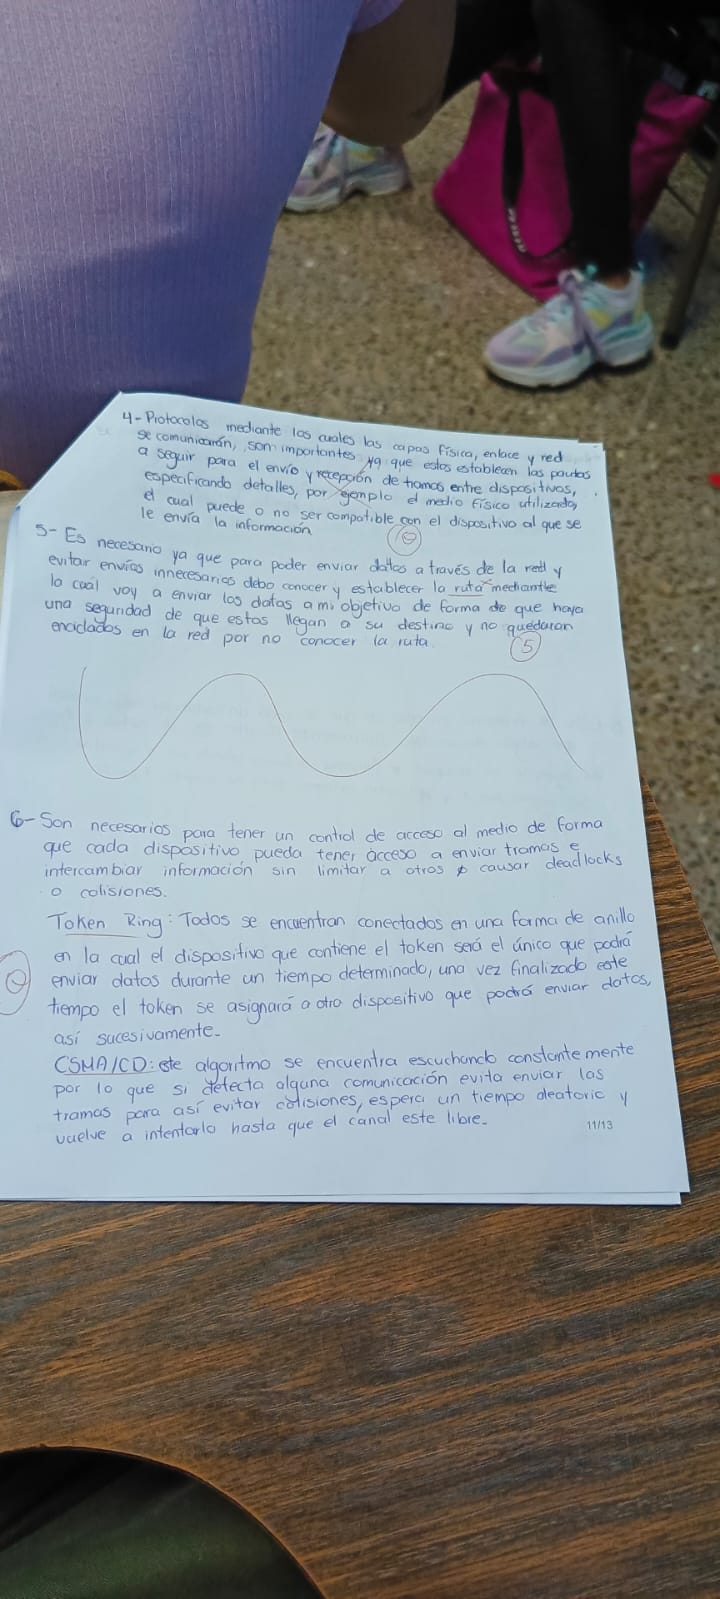 4- Protocolos mediante los cuales las capas física, enlace y red
se comunicarán, son importantes ya que estos establecen las pautas
a seguir para el envío y recepción de tramas entre dispositivos,
especificando detalles, por ejemplo el medio físico utilizado,
el cual puede o no ser compatible con el dispositivo al que se
le envía la información
10
5- Es necesario ya que para poder enviar datos a través de la red y
evitar envíos innecesarios debo conocer y establecer la ruta mediante
la cual voy a enviar los datos a mi objetivo de forma de que haya
una seguridad de que estos llegan a su destino y no quedaran
enciclados en la red por no conocer la ruta.
5
6- Son necesarios para tener un control de acceso al medio de forma
que cada dispositivo pueda tener acceso a enviar tramas e
intercambiar información sin limitar a otros o causar deadlocks
o colisiones.
Token Ring: Todos se encuentran conectados en una forma de anillo
en la cual el dispositivo que contiene el token será el único que podrá
enviar datos durante un tiempo determinado, una vez finalizado este
tiempo el token se asignará a otro dispositivo que podrá enviar datos,
así sucesivamente.
CSMA/CD: este algoritmo se encuentra escuchando constantemente
por lo que si detecta alguna comunicación evita enviar las
tramas para así evitar colisiones, espera un tiempo aleatorio y
vuelve a intentarlo hasta que el canal este libre.
11/13